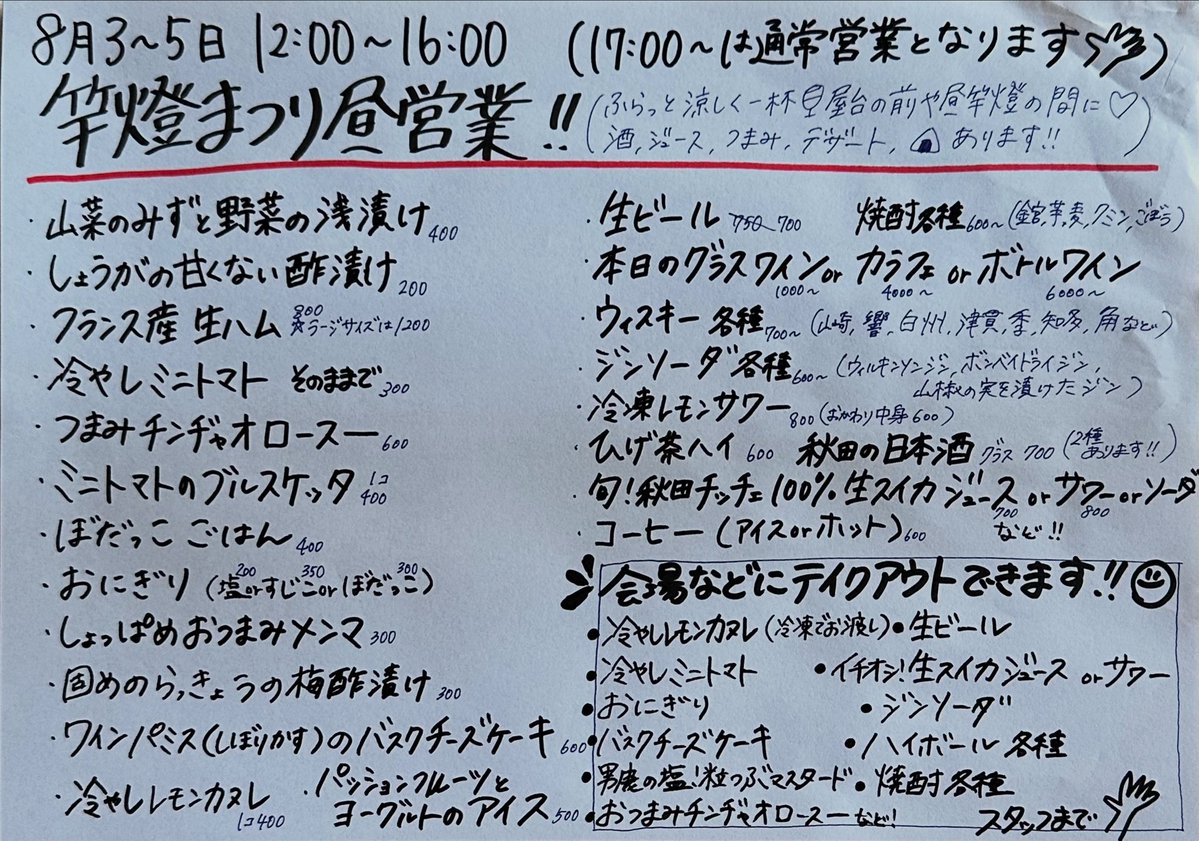 8月3~5日 12:00~16:00 (17:00~は通常営業となります)
竿燈まつり昼営業!!
(ふらっと涼しく一杯 屋台の前や昼竿燈の間に♡
酒、ジュース、つまみ、デザート、🍙あります!!)
・山菜のみずと野菜の浅漬け 400
・しょうがの甘くない酢漬け 200
・フランス産 生ハム 800 ☆ラージサイズは1200
・冷やしミニトマト そのままで 300
・つまみチンヂャオロースー 600
・ミニトマトのブルスケッタ 1コ 400
・ぼだっこ ごはん 400
・おにぎり (塩 200 or すじこ 350 or ぼだっこ 300)
・しょっぱめおつまみメンマ 300
・固めのらっきょうの梅酢漬け 300
・ワインパミス(しぼりかす)のバスクチーズケーキ 600
・冷やしレモンカヌレ 1コ400
・パッションフルーツとヨーグルトのアイス 500
・生ビール 700 焼酎各種 600~ (芋, 麦, クミン, ごぼう)
・本日のグラスワイン 1000~ or カラフェ 4000~ or ボトルワイン 6000~
・ウィスキー 各種 700~ (山崎, 響, 白州, 津貫, 季, 知多, 角など)
・ジンソーダ 各種 600~ (ウィルキンソンジン, ボンベイドライジン, 山椒の実を漬けたジン)
・冷凍レモンサワー 800 (おかわり中身 600)
・ひげ茶ハイ 600 秋田の日本酒 グラス 700 (2種あります!!)
・旬!秋田チッチェ 100% 生スイカジュース 700 or サワー 800 or ソーダ
・コーヒー (アイス or ホット) 600 など!!
会場などにテイクアウトできます!!
●冷やしレモンカヌレ (冷凍でお渡し) ●生ビール
●冷やしミニトマト ●イチオシ!生スイカジュース or サワー
●おにぎり ●ジンソーダ
●バスクチーズケーキ ●ハイボール 各種
●男鹿の塩!粒つぶマスタード ●焼酎各種
●おつまみチンヂャオロースー など! スタッフまで